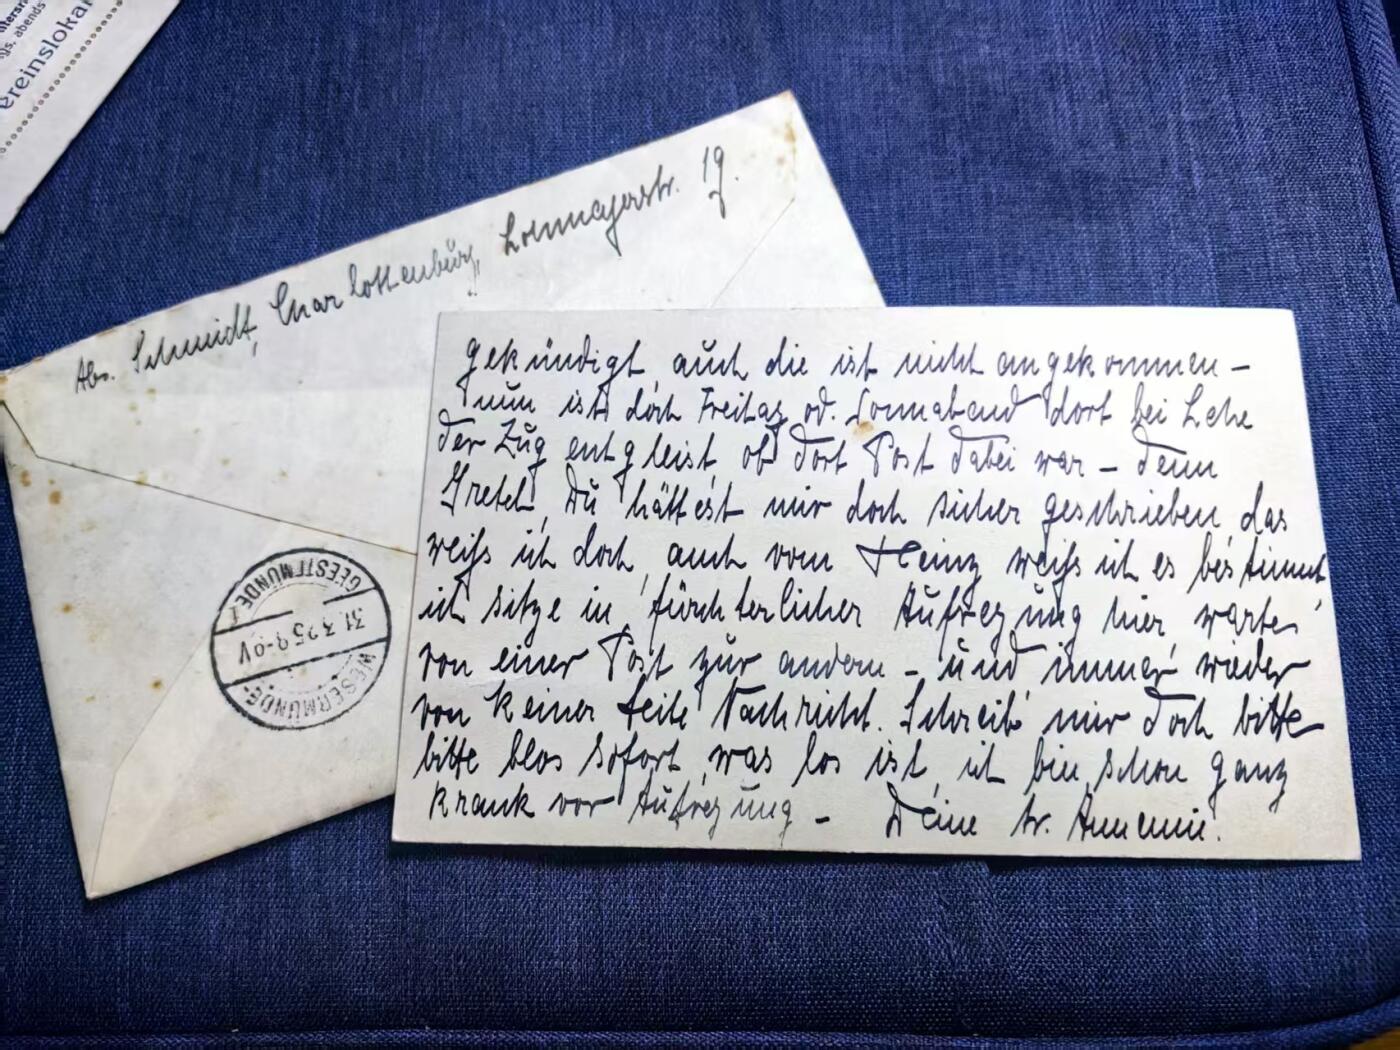 ereinslokal
abends
Abs. Schmidt, Charlottenburg, Lohmeyerstr. 19.
GEESTEMÜNDE
31.3.25.8-9V
WESERMÜNDE-
gekündigt, auch die ist nicht angekommen –
nun ist doch Freitag od. Sonnabend dort bei Lehe
der Zug entgleist, ob dort Post dabei war – denn
Gretel, Du hättest mir doch sicher geschrieben, das
weiß ich doch, auch vom Heinz weiß ich es bestimmt,
ich sitze in fürchterlicher Aufregung hier, warte
von einer Post zur andern – und immer wieder
von keiner Seite Nachricht. Schreib' mir doch bitte
bitte blos sofort, was los ist, ich bin schon ganz
krank vor Aufregung – Deine tr. Annemie.